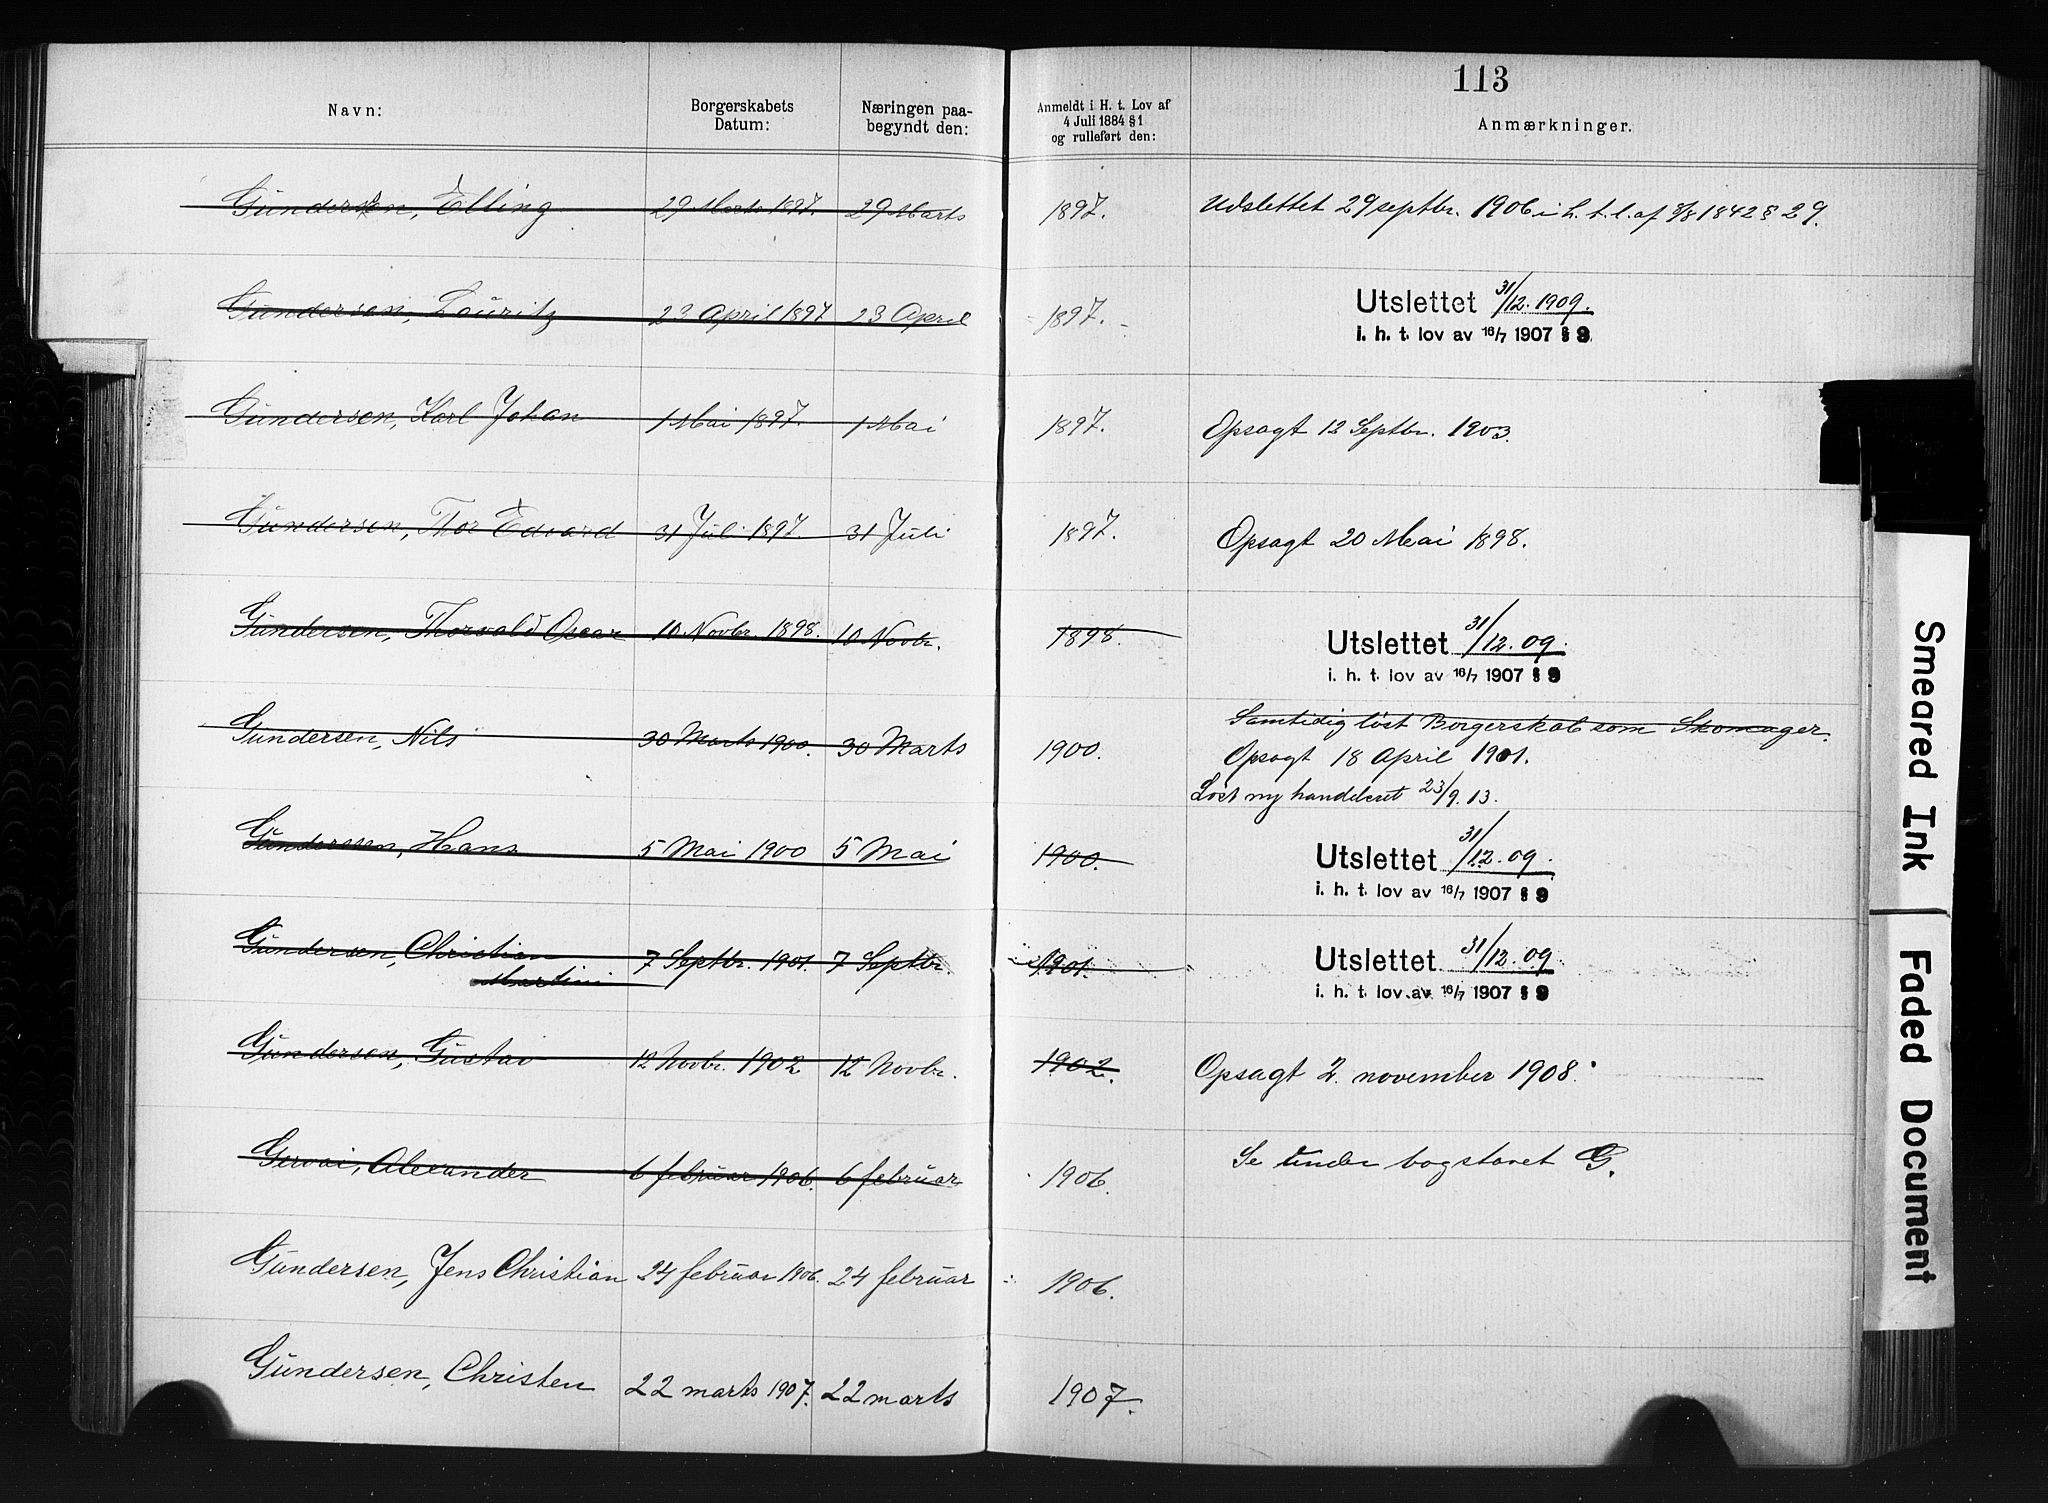 113
Navn: Borgerskabets Datum: Næringen paabegyndt den: Anmeldt i H. t. Lov af 4 Juli 1884 § 1 og rulleført den: Anmærkninger.
Gundersen, Elling 29 Marts 1897. 29 Marts 1897. Udslettet 29 septbr. 1906 i h. t. l. af 8/8 1842 § 29.
Gundersen, Lauritz 23 April 1897 23 April 1897. Utslettet 31/12. 1909.
i. h. t. lov av 16/7 1907 § 9
Gundersen, Karl Johan 1 Mai 1897. 1 Mai 1897. Opsagt 12 Septbr. 1903.
Gundersen, Thor Edvard 31 Juli 1897. 31 Juli 1897. Opsagt 20 Mai 1898.
Gundersen, Thorvald Oscar 10 Novbr. 1898. 10 Novbr. 1898. Utslettet 31/12. 09.
i. h. t. lov av 16/7 1907 § 9
Samtidig løst Borgerskab som Skomager.
Gundersen, Nils 30 Marts 1900. 30 Marts 1900. Opsagt 18 April 1901.
Løst ny handelsret 23/9. 13.
Gundersen, Hans 5 Mai 1900 5 Mai 1900. Utslettet 31/12. 09.
i. h. t. lov av 16/7 1907 § 9
Gundersen, Christian 7 Septbr. 1901. 7 Septbr. 1901. Utslettet 31/12. 09.
Martin i. h. t. lov av 16/7 1907 § 9
Gundersen, Gustav 12 Novbr. 1902 12 Novbr. 1902. Opsagt 2. november 1908.
Gervai, Alexander 6 februar 1906. 6 februar 1906. Se under bogstavet G.
Gundersen, Jens Christian 24 februar 1906. 24 februar 1906.
Gundersen, Christen 22 marts 1907. 22 marts 1907.
Smeared Ink
Faded Document